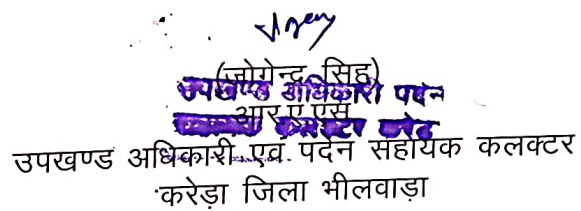 (जोगेन्द्र सिंह)
उपखण्ड अधिकारी पदेन
आर.ए.एस.
कलक्टर
उपखण्ड अधिकारी एवं पदेन सहायक कलक्टर
करेड़ा जिला भीलवाड़ा